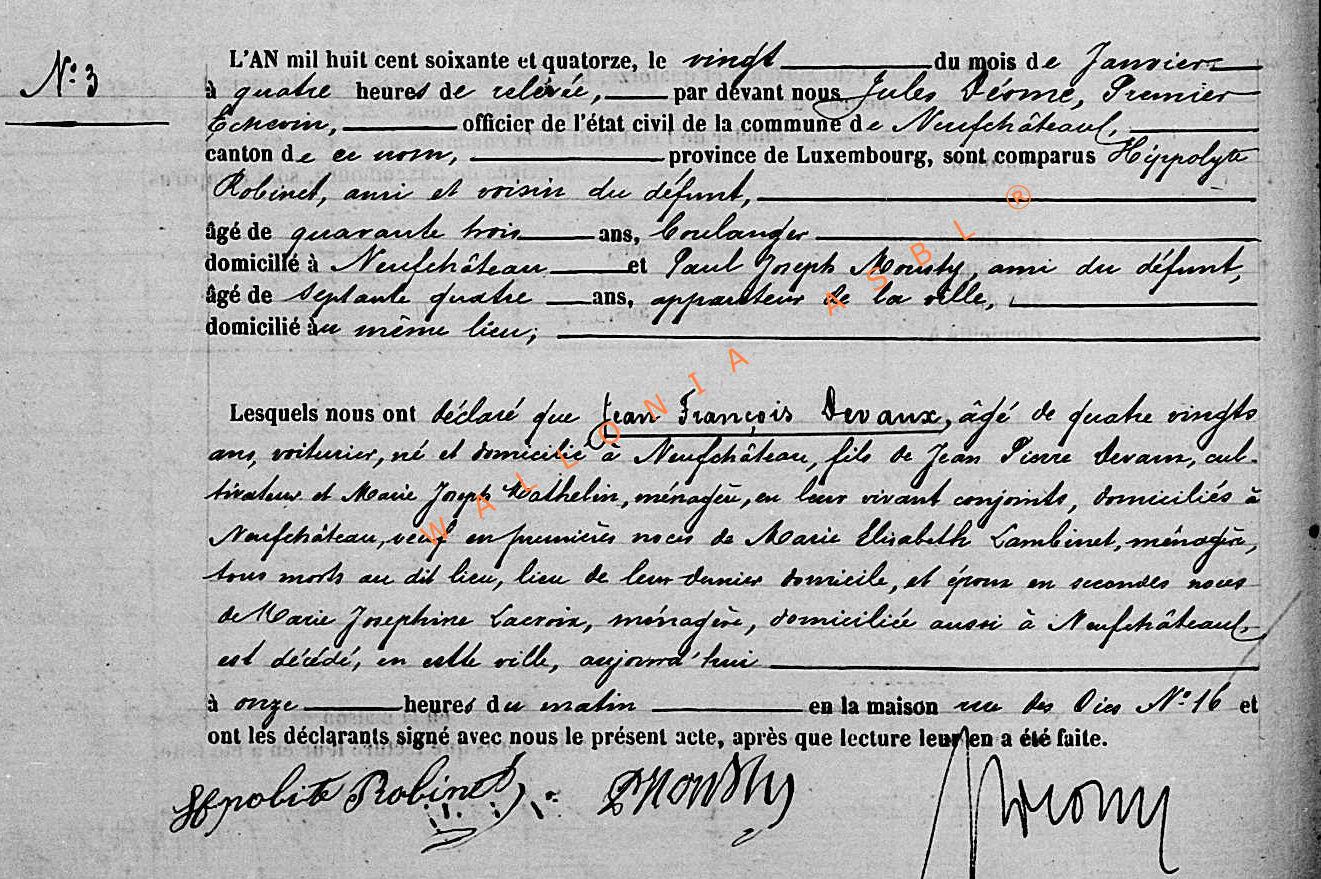 N° 3
L'AN mil huit cent soixante et quatorze, le vingt du mois de Janvier
à quatre heures de relevée, par devant nous Jules Désome, Premier
Echevin, officier de l'état civil de la commune de Neufchâteau,
canton de ce nom, province de Luxembourg, sont comparus Hippolyte
Robinet, ami et voisin du défunt,
âgé de quarante trois ans, boulanger
domicilié à Neufchâteau et Paul Joseph Mousty, ami du défunt,
âgé de septante quatre ans, appariteur de la ville,
domicilié au même lieu;
Lesquels nous ont déclaré que Jean François Devaux, âgé de quatre vingts
ans, voiturier, né et domicilié à Neufchâteau, fils de Jean Pierre Devaux, cul-
tivateur et Marie Joseph Mathelin, ménagère, en leur vivant conjoints, domiciliés à
Neufchâteau, veuf en premières noces de Marie Elisabeth Lambinet, ménagère,
tous morts au dit lieu, lieu de leur dernier domicile, et époux en secondes noces
de Marie Josephine Lacroix, ménagère, domiciliée aussi à Neufchâteau,
est décédé, en cette ville, aujourd'hui
à onze heures du matin en la maison rue des N° 16 et
ont les déclarants signé avec nous le présent acte, après que lecture leur en a été faite.
Hypolite Robinet PMousty
WALLONIA ASBL ®